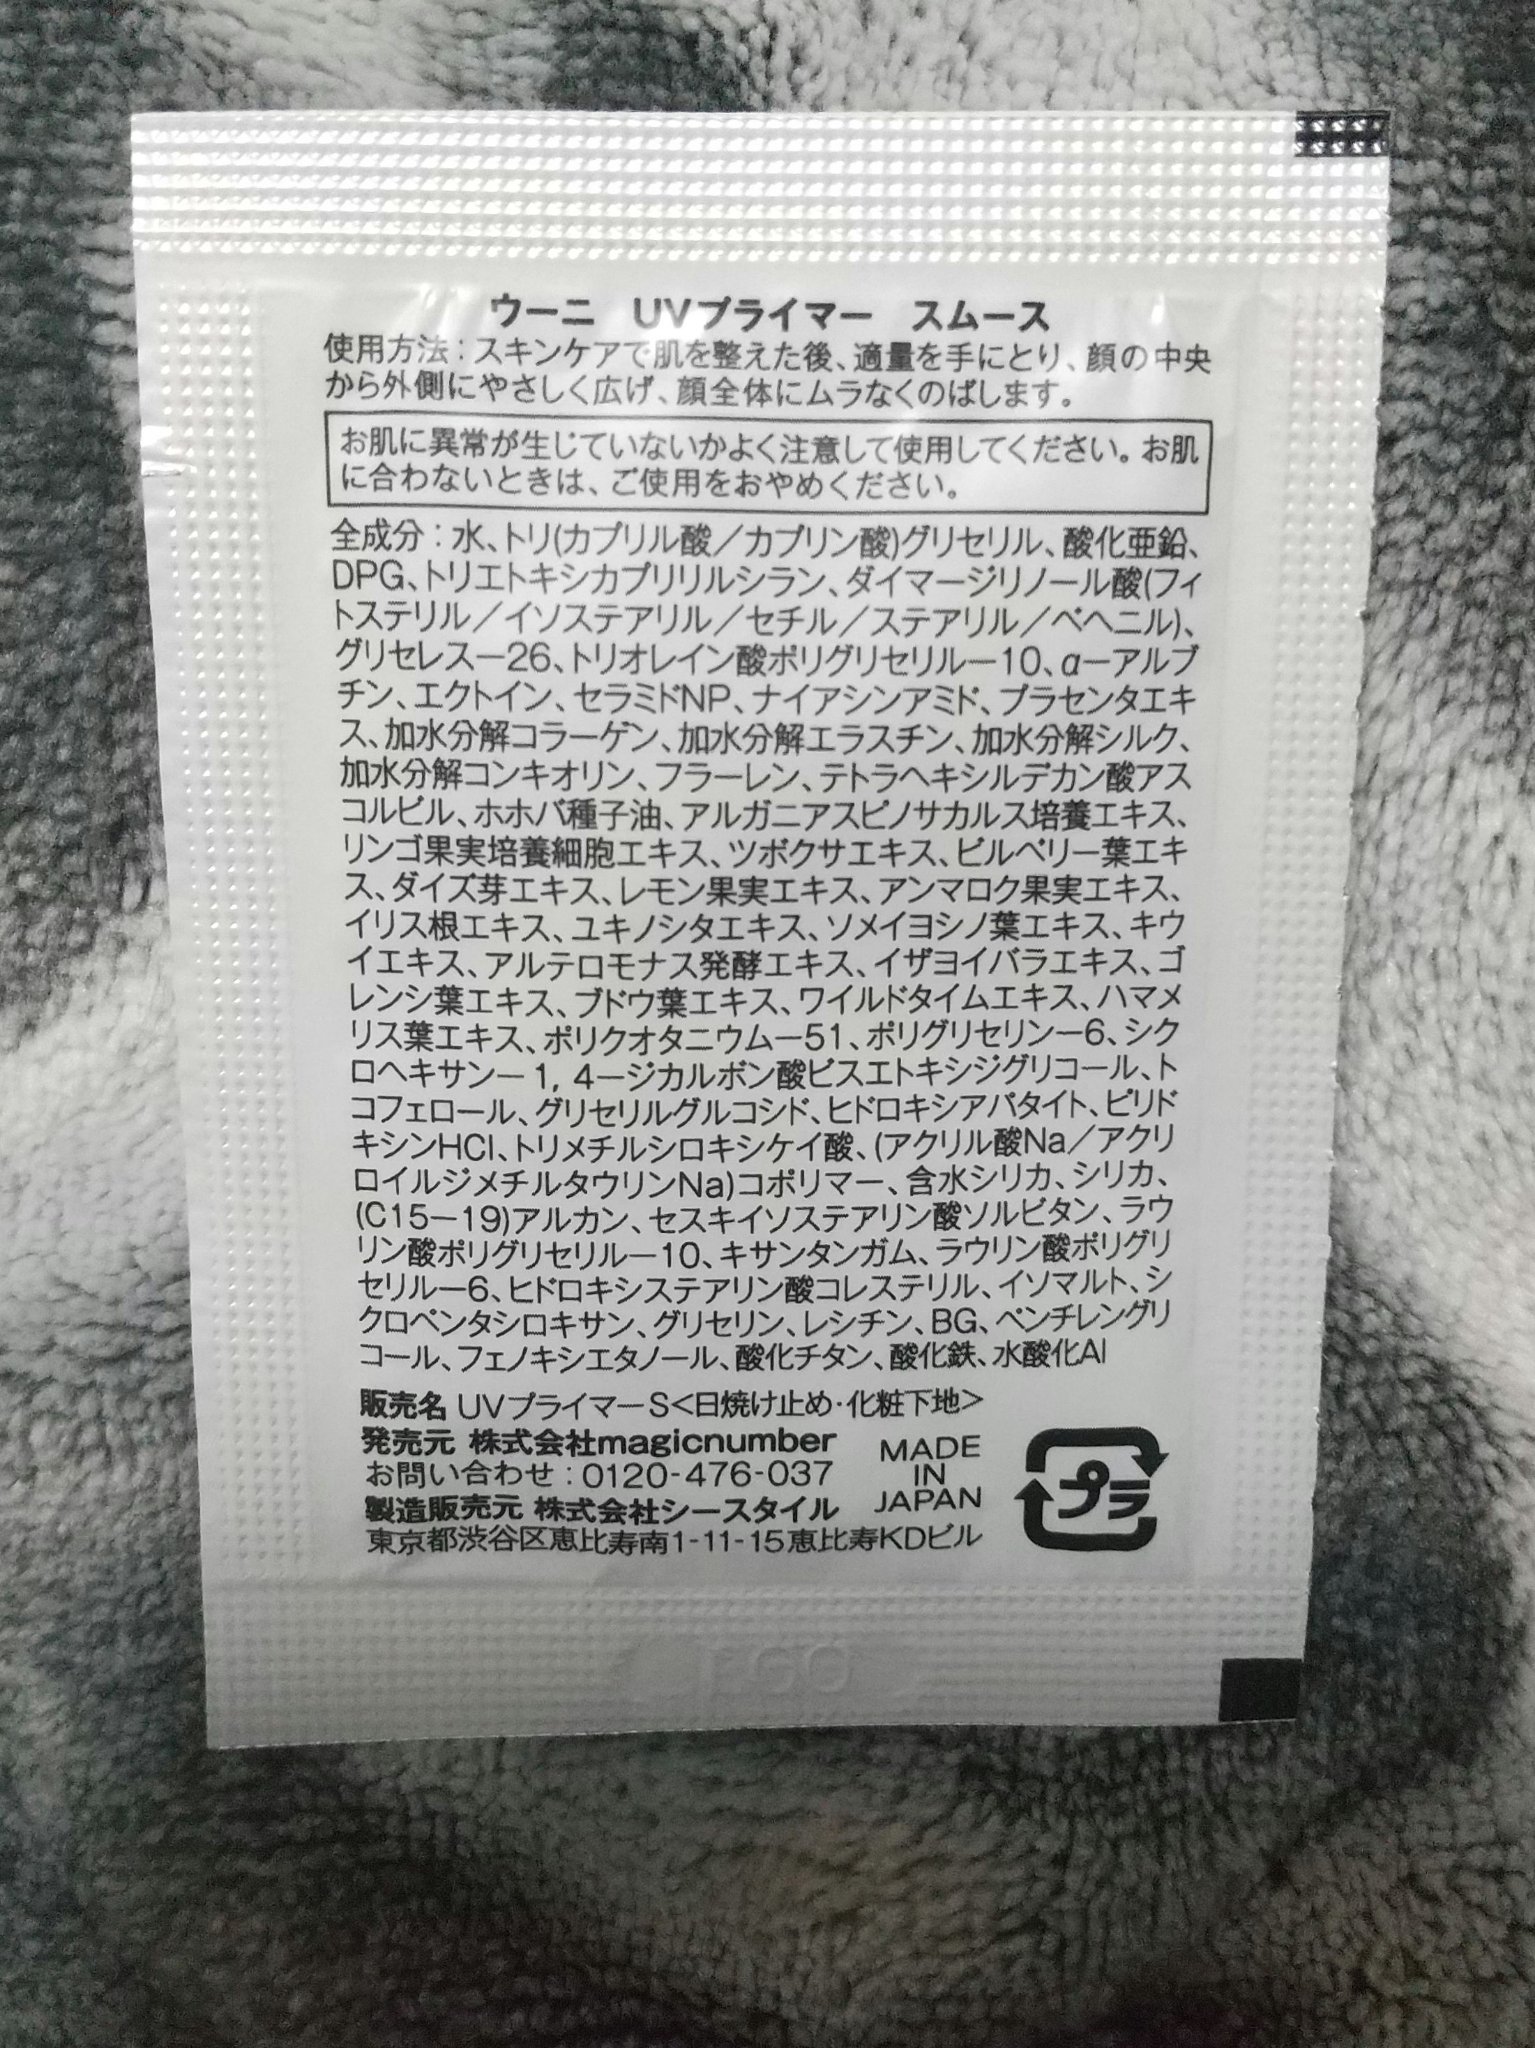 ウーニ　UVプライマー　スムース
使用方法：スキンケアで肌を整えた後、適量を手にとり、顔の中央
から外側にやさしく広げ、顔全体にムラなくのばします。
お肌に異常が生じていないかよく注意して使用してください。お肌
に合わないときは、ご使用をおやめください。
全成分：水、トリ(カプリル酸／カプリン酸)グリセリル、酸化亜鉛、
DPG、トリエトキシカプリリルシラン、ダイマージリノール酸(フィ
トステリル／イソステアリル／セチル／ステアリル／ベヘニル)、
グリセレスー26、トリオレイン酸ポリグリセリルー10、αーアルブ
チン、エクトイン、セラミドNP、ナイアシンアミド、プラセンタエキ
ス、加水分解コラーゲン、加水分解エラスチン、加水分解シルク、
加水分解コンキオリン、フラーレン、テトラヘキシルデカン酸アス
コルビル、ホホバ種子油、アルガニアスピノサカルス培養エキス、
リンゴ果実培養細胞エキス、ツボクサエキス、ビルベリー葉エキ
ス、ダイズ芽エキス、レモン果実エキス、アンマロク果実エキス、
イリス根エキス、ユキノシタエキス、ソメイヨシノ葉エキス、キウ
イエキス、アルテロモナス発酵エキス、イザヨイバラエキス、ゴ
レンシ葉エキス、ブドウ葉エキス、ワイルドタイムエキス、ハマメ
リス葉エキス、ポリクオタニウムー51、ポリグリセリンー6、シク
ロヘキサンー1, 4ージカルボン酸ビスエトキシジグリコール、ト
コフェロール、グリセリルグルコシド、ヒドロキシアパタイト、ピリド
キシンHCl、トリメチルシロキシケイ酸、(アクリル酸Na／アクリ
ロイルジメチルタウリンNa)コポリマー、含水シリカ、シリカ、
(C15ー19)アルカン、セスキイソステアリン酸ソルビタン、ラウ
リン酸ポリグリセリルー10、キサンタンガム、ラウリン酸ポリグリ
セリルー6、ヒドロキシステアリン酸コレステリル、イソマルト、シ
クロペンタシロキサン、グリセリン、レシチン、BG、ペンチレングリ
コール、フェノキシエタノール、酸化チタン、酸化鉄、水酸化Al
販売名 UVプライマーS<日焼け止め・化粧下地>
発売元 株式会社magicnumber
お問い合わせ：0120-476-037
製造販売元 株式会社シースタイル
東京都渋谷区恵比寿南1-11-15恵比寿KDビル
MADE
IN
JAPAN
プラ